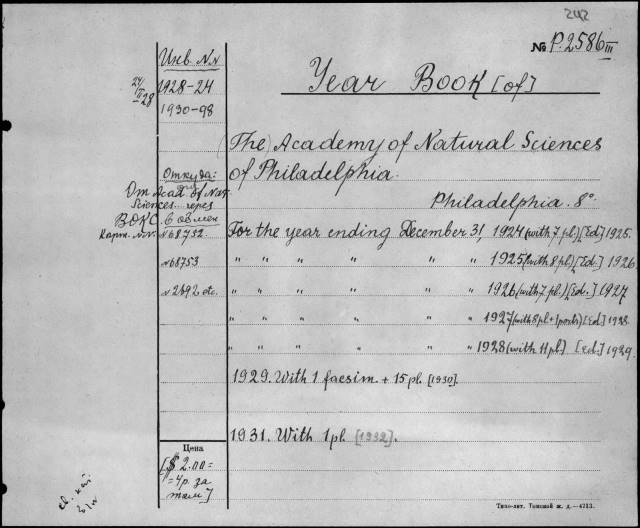 242
№ P.2586 III
Инв. №№
Year Book [of]
24/III 28
1928-24
1930-98
(The) Academy of Natural Sciences
of Philadelphia.
Откуда:
От Acad. of Nat.
Sciences через
ВОКС в обмен
Philadelphia. 8°
Карт. №№ №68752
For the year ending December 31, 1924 (with 7 pl.) [Ed.] 1925.
№68753
" " " " " 1925 (with 8 pl.) [Ed.] 1926
№2892 etc.
" " " " " 1926 (with 7 pl.) [Ed.] 1927
" " " " " 1927 (with 8 pl + 1 portr.) [Ed.] 1928.
" " " " " 1928 (with 11 pl.) [Ed.] 1929.
1929. With 1 facsim. + 15 pl. [1930].
1931. With 1 pl. [1932].
Цена
[$ 2.00 =
= 4 р. за
том]
Типо-лит. Томской ж. д.—4713.